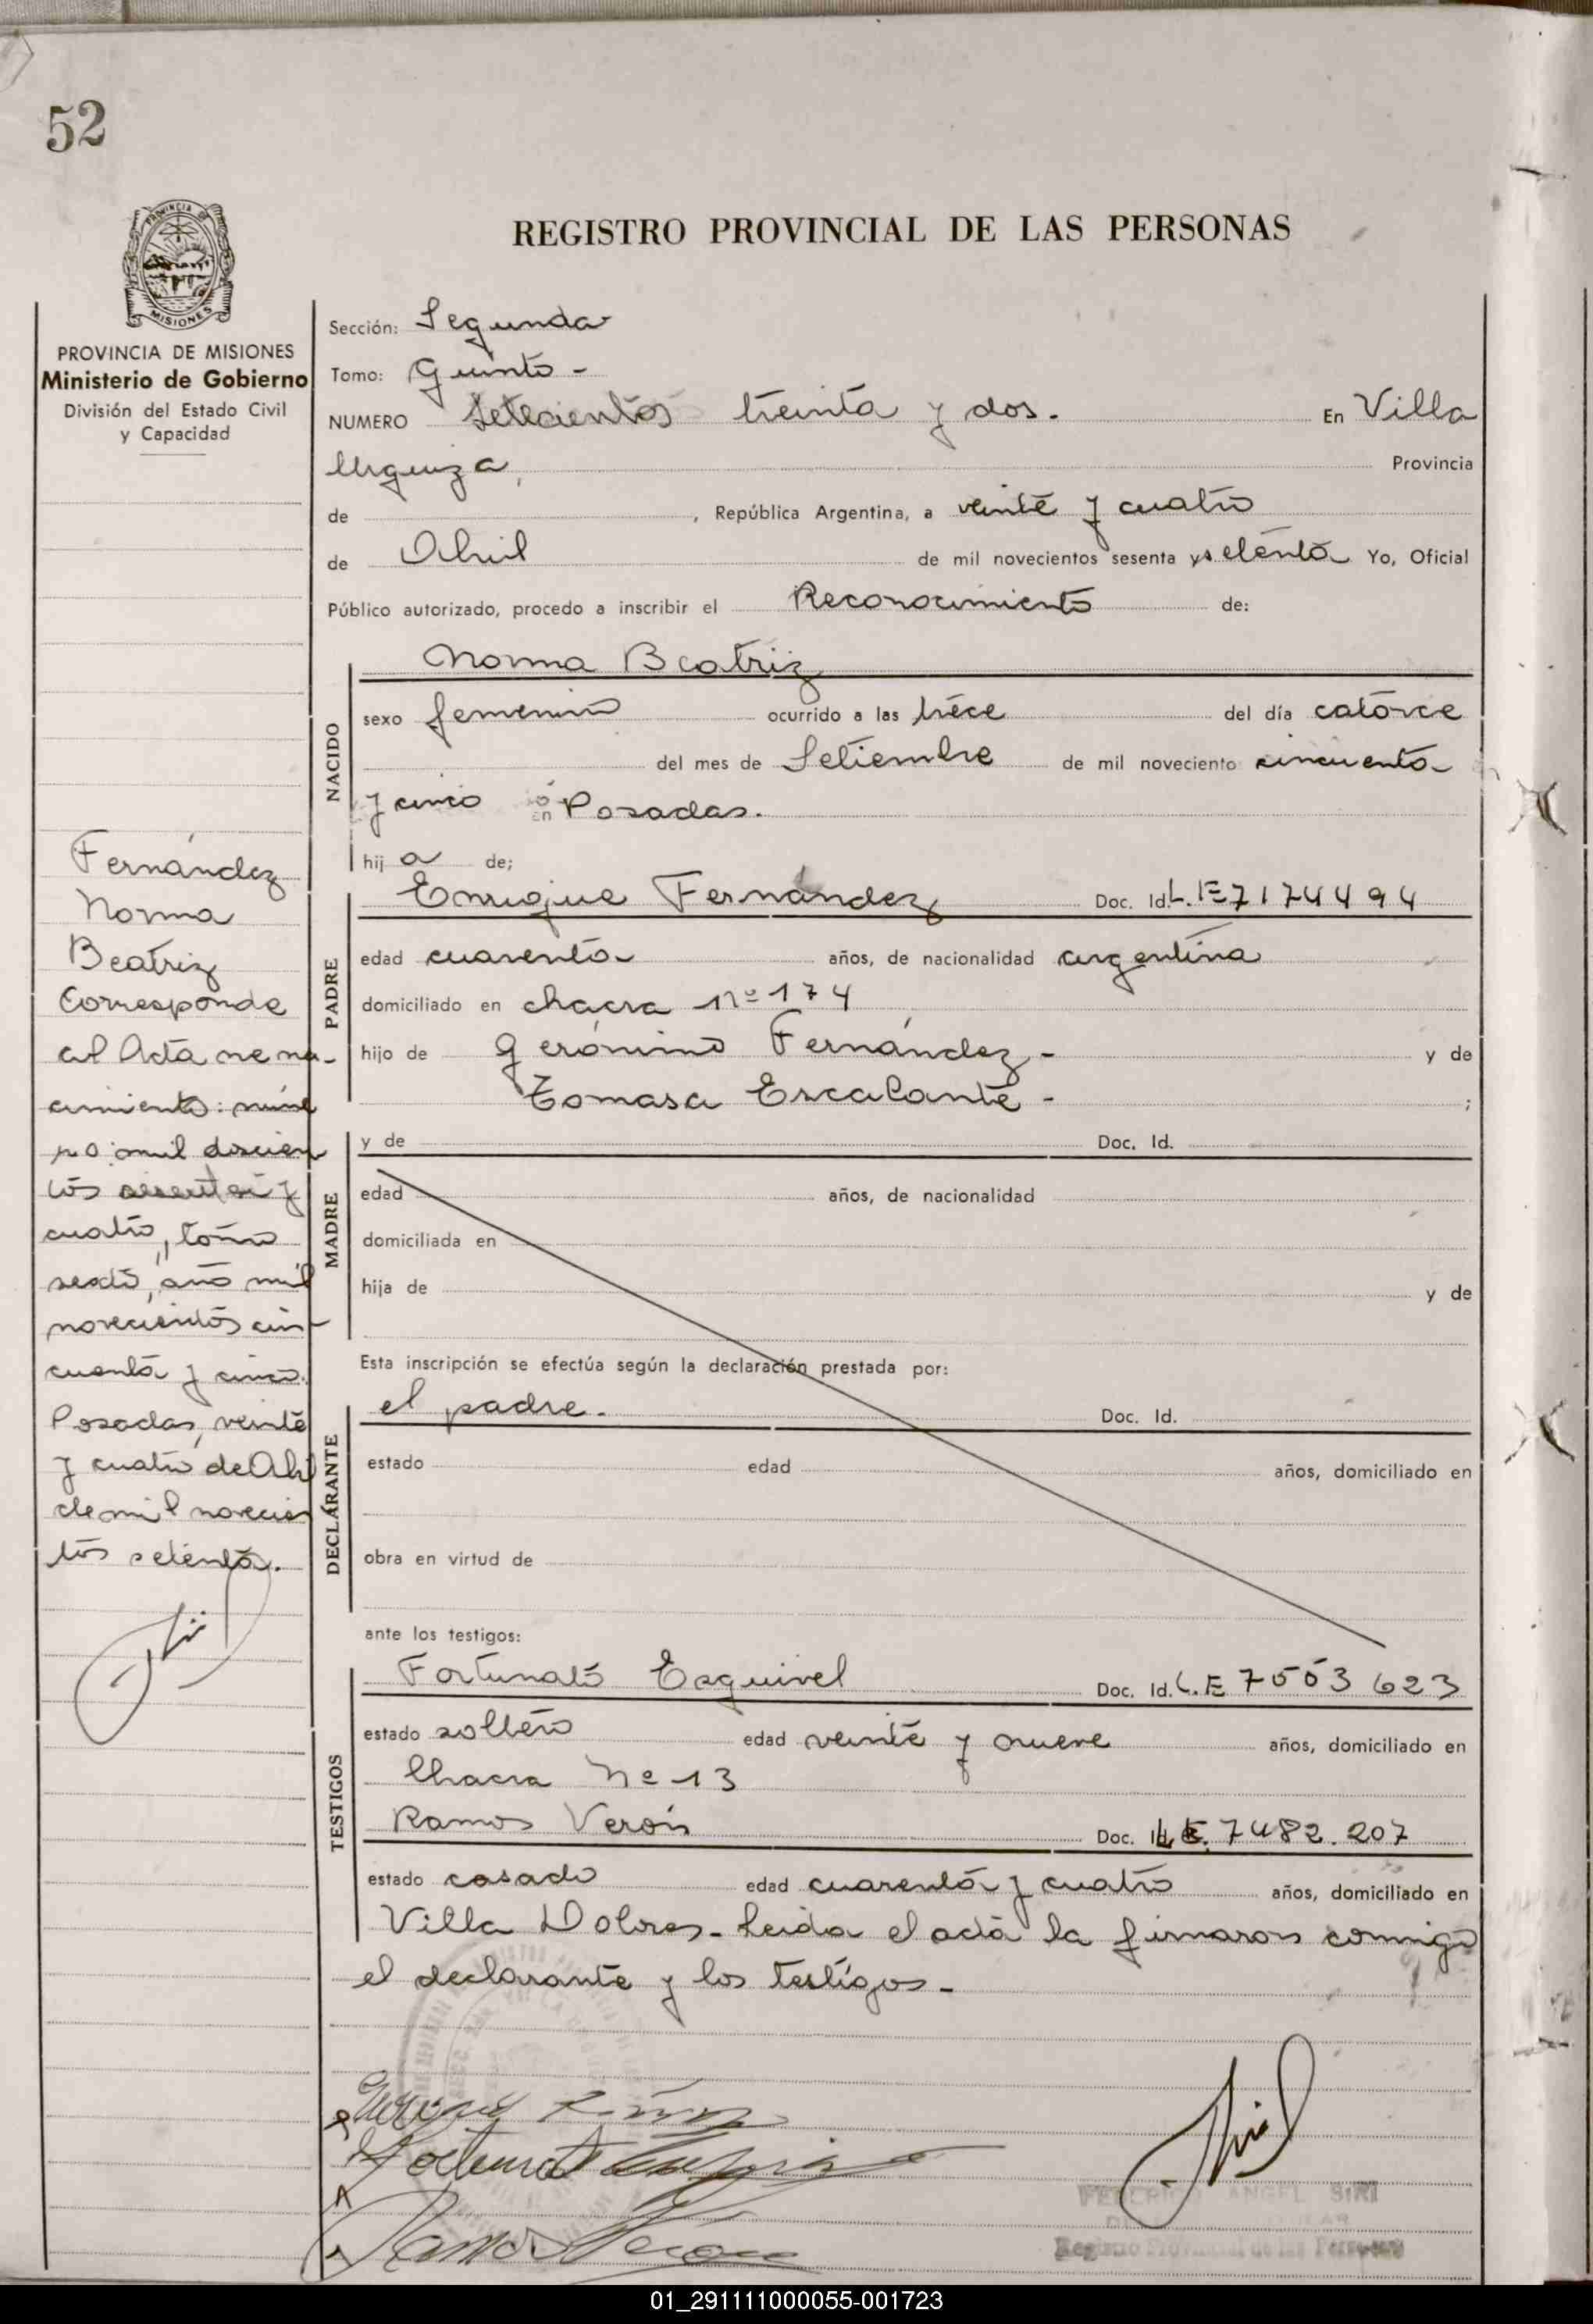 52
PROVINCIA DE MISIONES
REGISTRO PROVINCIAL DE LAS PERSONAS
PROVINCIA DE MISIONES
Ministerio de Gobierno
División del Estado Civil
y Capacidad
Sección: Segunda
Tomo: Quinto -
NUMERO Setecientos treinta y dos. En Villa
Urquiza, Provincia
de , República Argentina, a veinte y cuatro
de Abril de mil novecientos sesenta y setenta Yo, Oficial
Público autorizado, procedo a inscribir el Reconocimiento de:
NACIDO
Norma Beatriz
sexo femenino ocurrido a las trece del día catorce
del mes de Setiembre de mil noveciento cincuenta
y cinco en Posadas.
hij a de;
PADRE
Enrique Fernández Doc. Id. L.E 7174494
edad cuarenta años, de nacionalidad argentina
domiciliado en chacra nº 174
hijo de Gerónimo Fernández - y de
Tomasa Escalante - ;
MADRE
y de Doc. Id.
edad años, de nacionalidad
domiciliada en
hija de y de
Esta inscripción se efectúa según la declaración prestada por:
DECLARANTE
el padre. Doc. Id.
estado edad años, domiciliado en
obra en virtud de
ante los testigos:
TESTIGOS
Fortunato Esquivel Doc. Id. L.E 7503623
estado soltero edad veinte y nueve años, domiciliado en
Chacra Nº 13
Ramos Verón Doc. Id. L.E. 7482.207
estado casado edad cuarenta y cuatro años, domiciliado en
Villa Dolores - Leida el acta la firmaron conmigo
el declarante y los testigos -
Fernández
Norma
Beatriz
Corresponde
al Acta de na-
cimiento: núme
ro mil doscien
tos sesenta y
cuatro, tomo
sexto, año mil
novecientos cin-
cuenta y cinco.
Posadas, veinte
y cuatro de Abril
de mil novecien
tos setenta.
Ramos Verón
FEDERICO ANGEL SIRI
Registro Provincial de las Personas
01_291111000055-001723